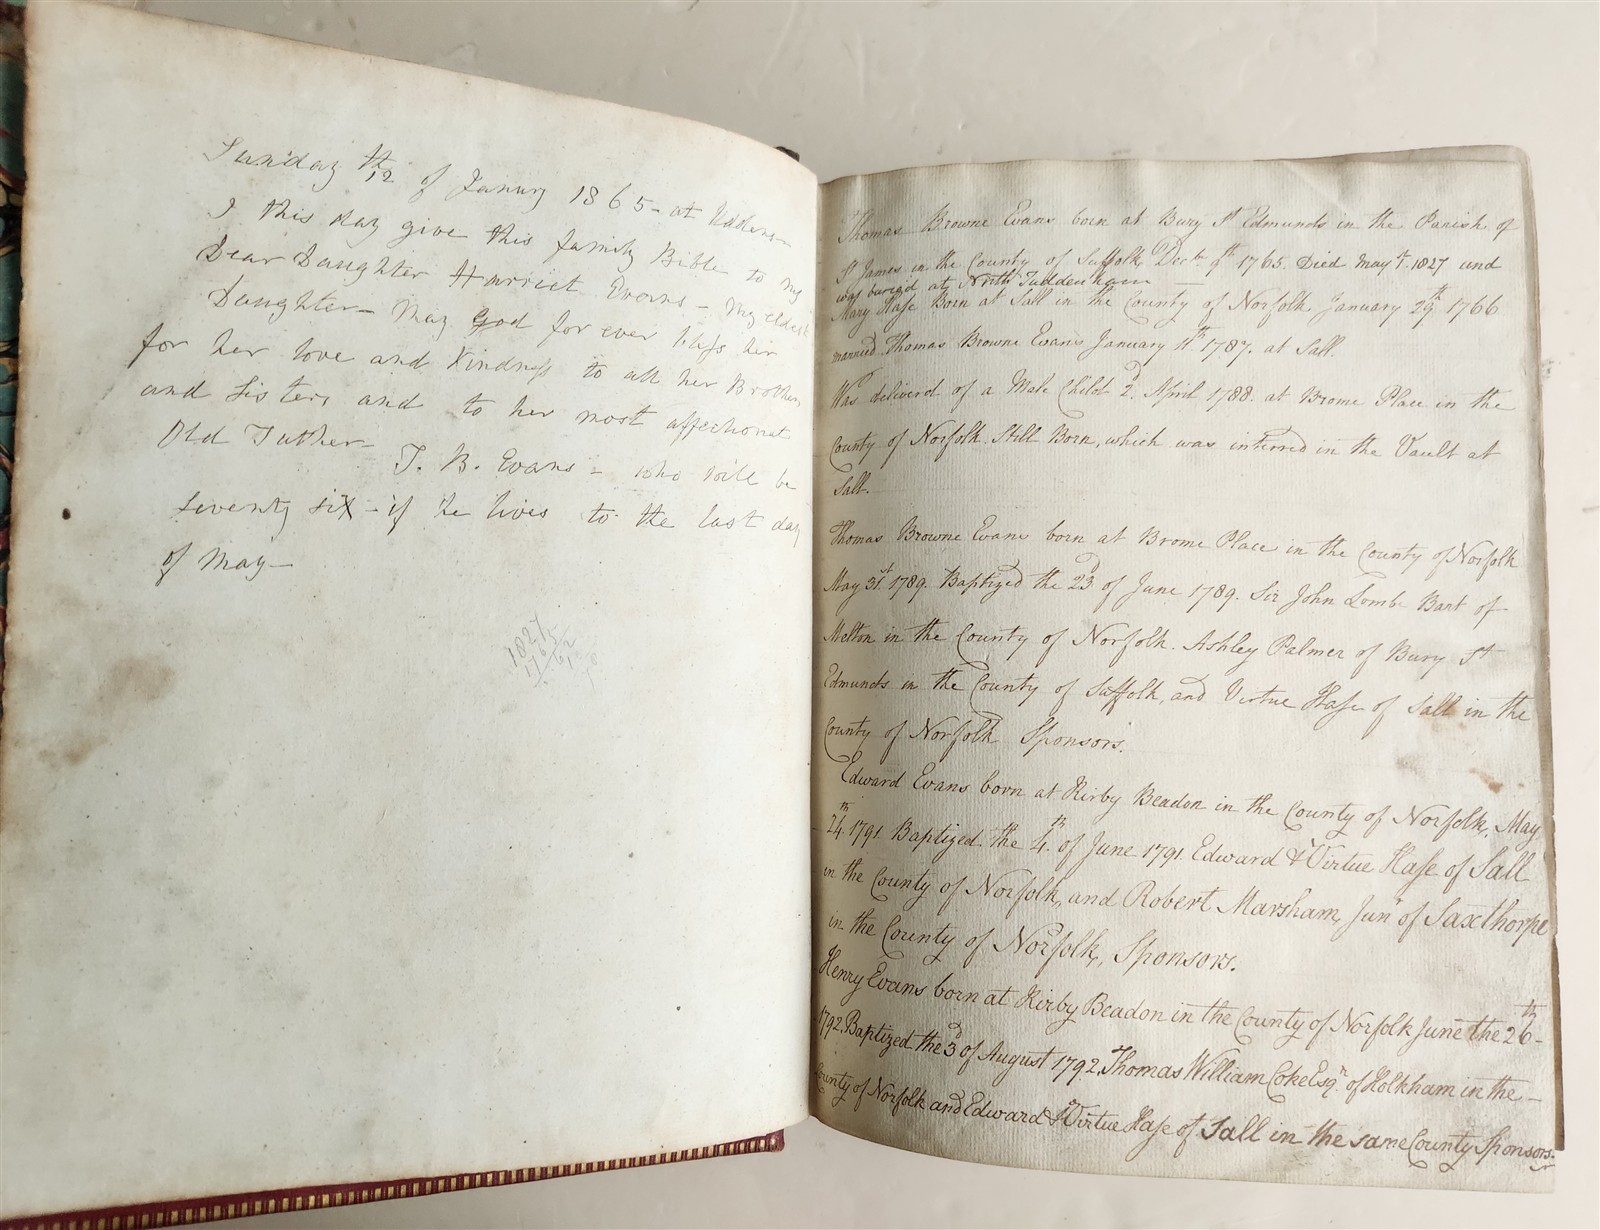 Sunday 12th of Janury 1865 - at
I this day give this family Bible to my
Dear Daughter Harriet Evans - My eldest
Daughter - May God for ever bless her
for her love and Kindness to all her Brothers
and Sisters and to her most affectionat
Old Father -
T. B. Evans - who will be
seventy six - if he lives to the last day
of May -
1827
Thomas Browne Evans born at Bury St Edmunds in the Parish of
St James in the County of Suffolk, Decbr 9th 1765. Died May 1827 and
was buried at North Tuddenham
Mary Hase Born at Sall in the County of Norfolk January 29th 1766
married Thomas Browne Evans January 1787. at Sall.
Was deliverd of a Male Child 2d. April 1788. at Brome Place in the
County of Norfolk Still Born, which was interred in the Vault at
Sall.
Thomas Browne Evans born at Brome Place in the County of Norfolk
May 31st 1789. Baptized the 23d of June 1789. Sir John Lombe Bart of
Melton in the County of Norfolk. Ashley Palmer of Bury St
Edmunds in the County of Suffolk, and Virtue Hase of Sall in the
County of Norfolk Sponsors.
Edward Evans born at Kirby Beadon in the County of Norfolk, May
24th. 1791. Baptized the 4th. of June 1791. Edward & Virtue Hase of Sall
in the County of Norfolk, and Robert Marsham, Junr of Saxthorpe
in the County of Norfolk, Sponsors.
Henry Evans born at Kirby Beadon in the County of Norfolk June the 26th -
1792. Baptized the 3d of August 1792. Thomas William Coke Esqr. of Holkham in the -
County of Norfolk and Edward & Virtue Hase of Sall in the same County Sponsors.